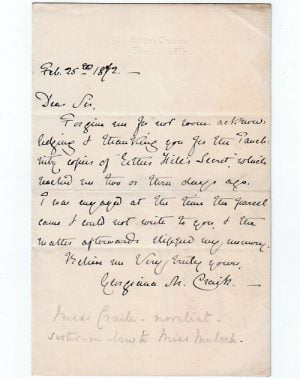 Feb. 25th 1872.
Dear Sir,
Forgive me for not sooner acknow-
ledging & thanking you for the Tauch-
nitz copies of "Esther Hill's Secret" which
reached me two or three days ago.
I was engaged at the time the parcel
came & could not write to you, & the
matter afterwards slipped my memory.
Believe me Very truly yours,
Georgiana M. Craik.
Miss Craik - novelist -
sister-in-law to Miss Muloch.